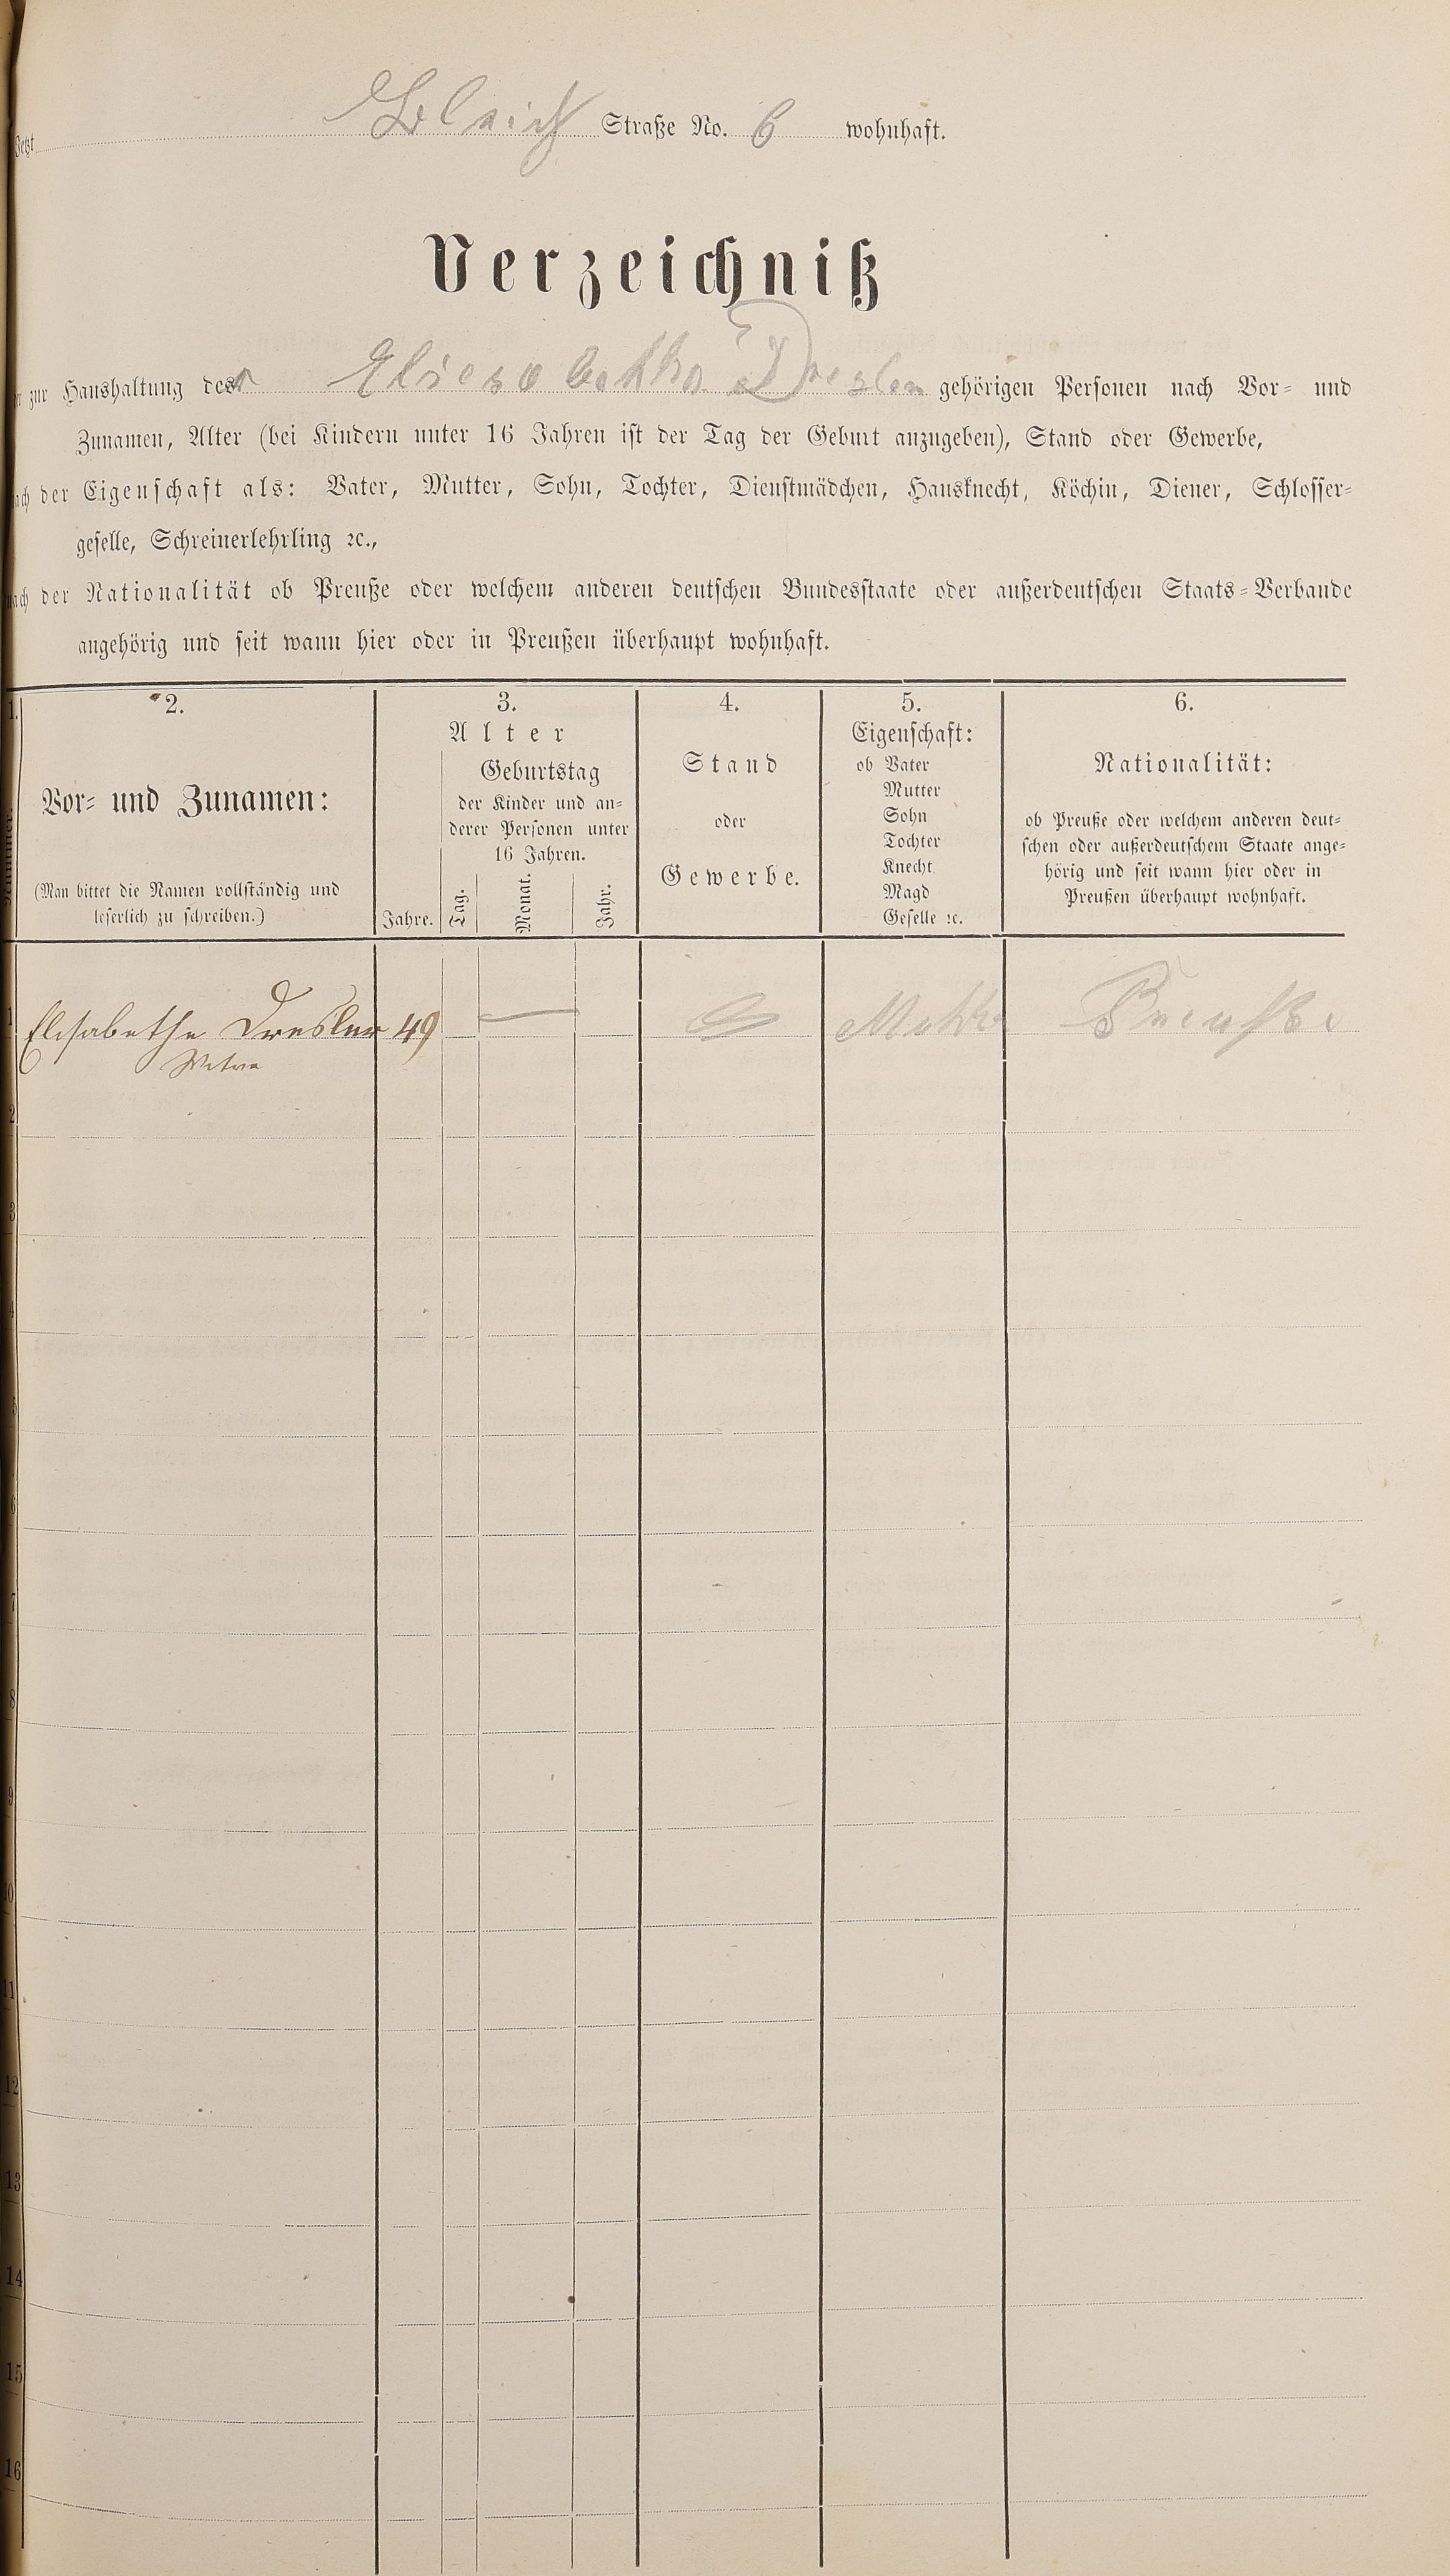 Jetzt Bleich Straße No. 6 wohnhaft.
Verzeichniß
zur Haushaltung des r Eliesabethe Dresler gehörigen Personen nach Vor- und
Zunamen, Alter (bei Kindern unter 16 Jahren ist der Tag der Geburt anzugeben), Stand oder Gewerbe,
nach der Eigenschaft als: Vater, Mutter, Sohn, Tochter, Dienstmädchen, Hausknecht, Köchin, Diener, Schlosser-
geselle, Schreinerlehrling ꝛc.,
nach der Nationalität ob Preuße oder welchem anderen deutschen Bundesstaate oder außerdeutschen Staats-Verbande
angehörig und seit wann hier oder in Preußen überhaupt wohnhaft.
1.
Nummer.
2.
Vor- und Zunamen:
(Man bittet die Namen vollständig und
leserlich zu schreiben.)
3.
Alter
Jahre.
Geburtstag
der Kinder und an-
derer Personen unter
16 Jahren.
Tag.
Monat.
Jahr.
4.
Stand
oder
Gewerbe.
5.
Eigenschaft:
ob Vater
Mutter
Sohn
Tochter
Knecht
Magd
Geselle ꝛc.
6.
Nationalität:
ob Preuße oder welchem anderen deut-
schen oder außerdeutschem Staate ange-
hörig und seit wann hier oder in
Preußen überhaupt wohnhaft.
1 Elisabethe Dresler 49 — Preuße
Witwe
2
3
4
5
6
7
8
9
10
11
12
13
14
15
16